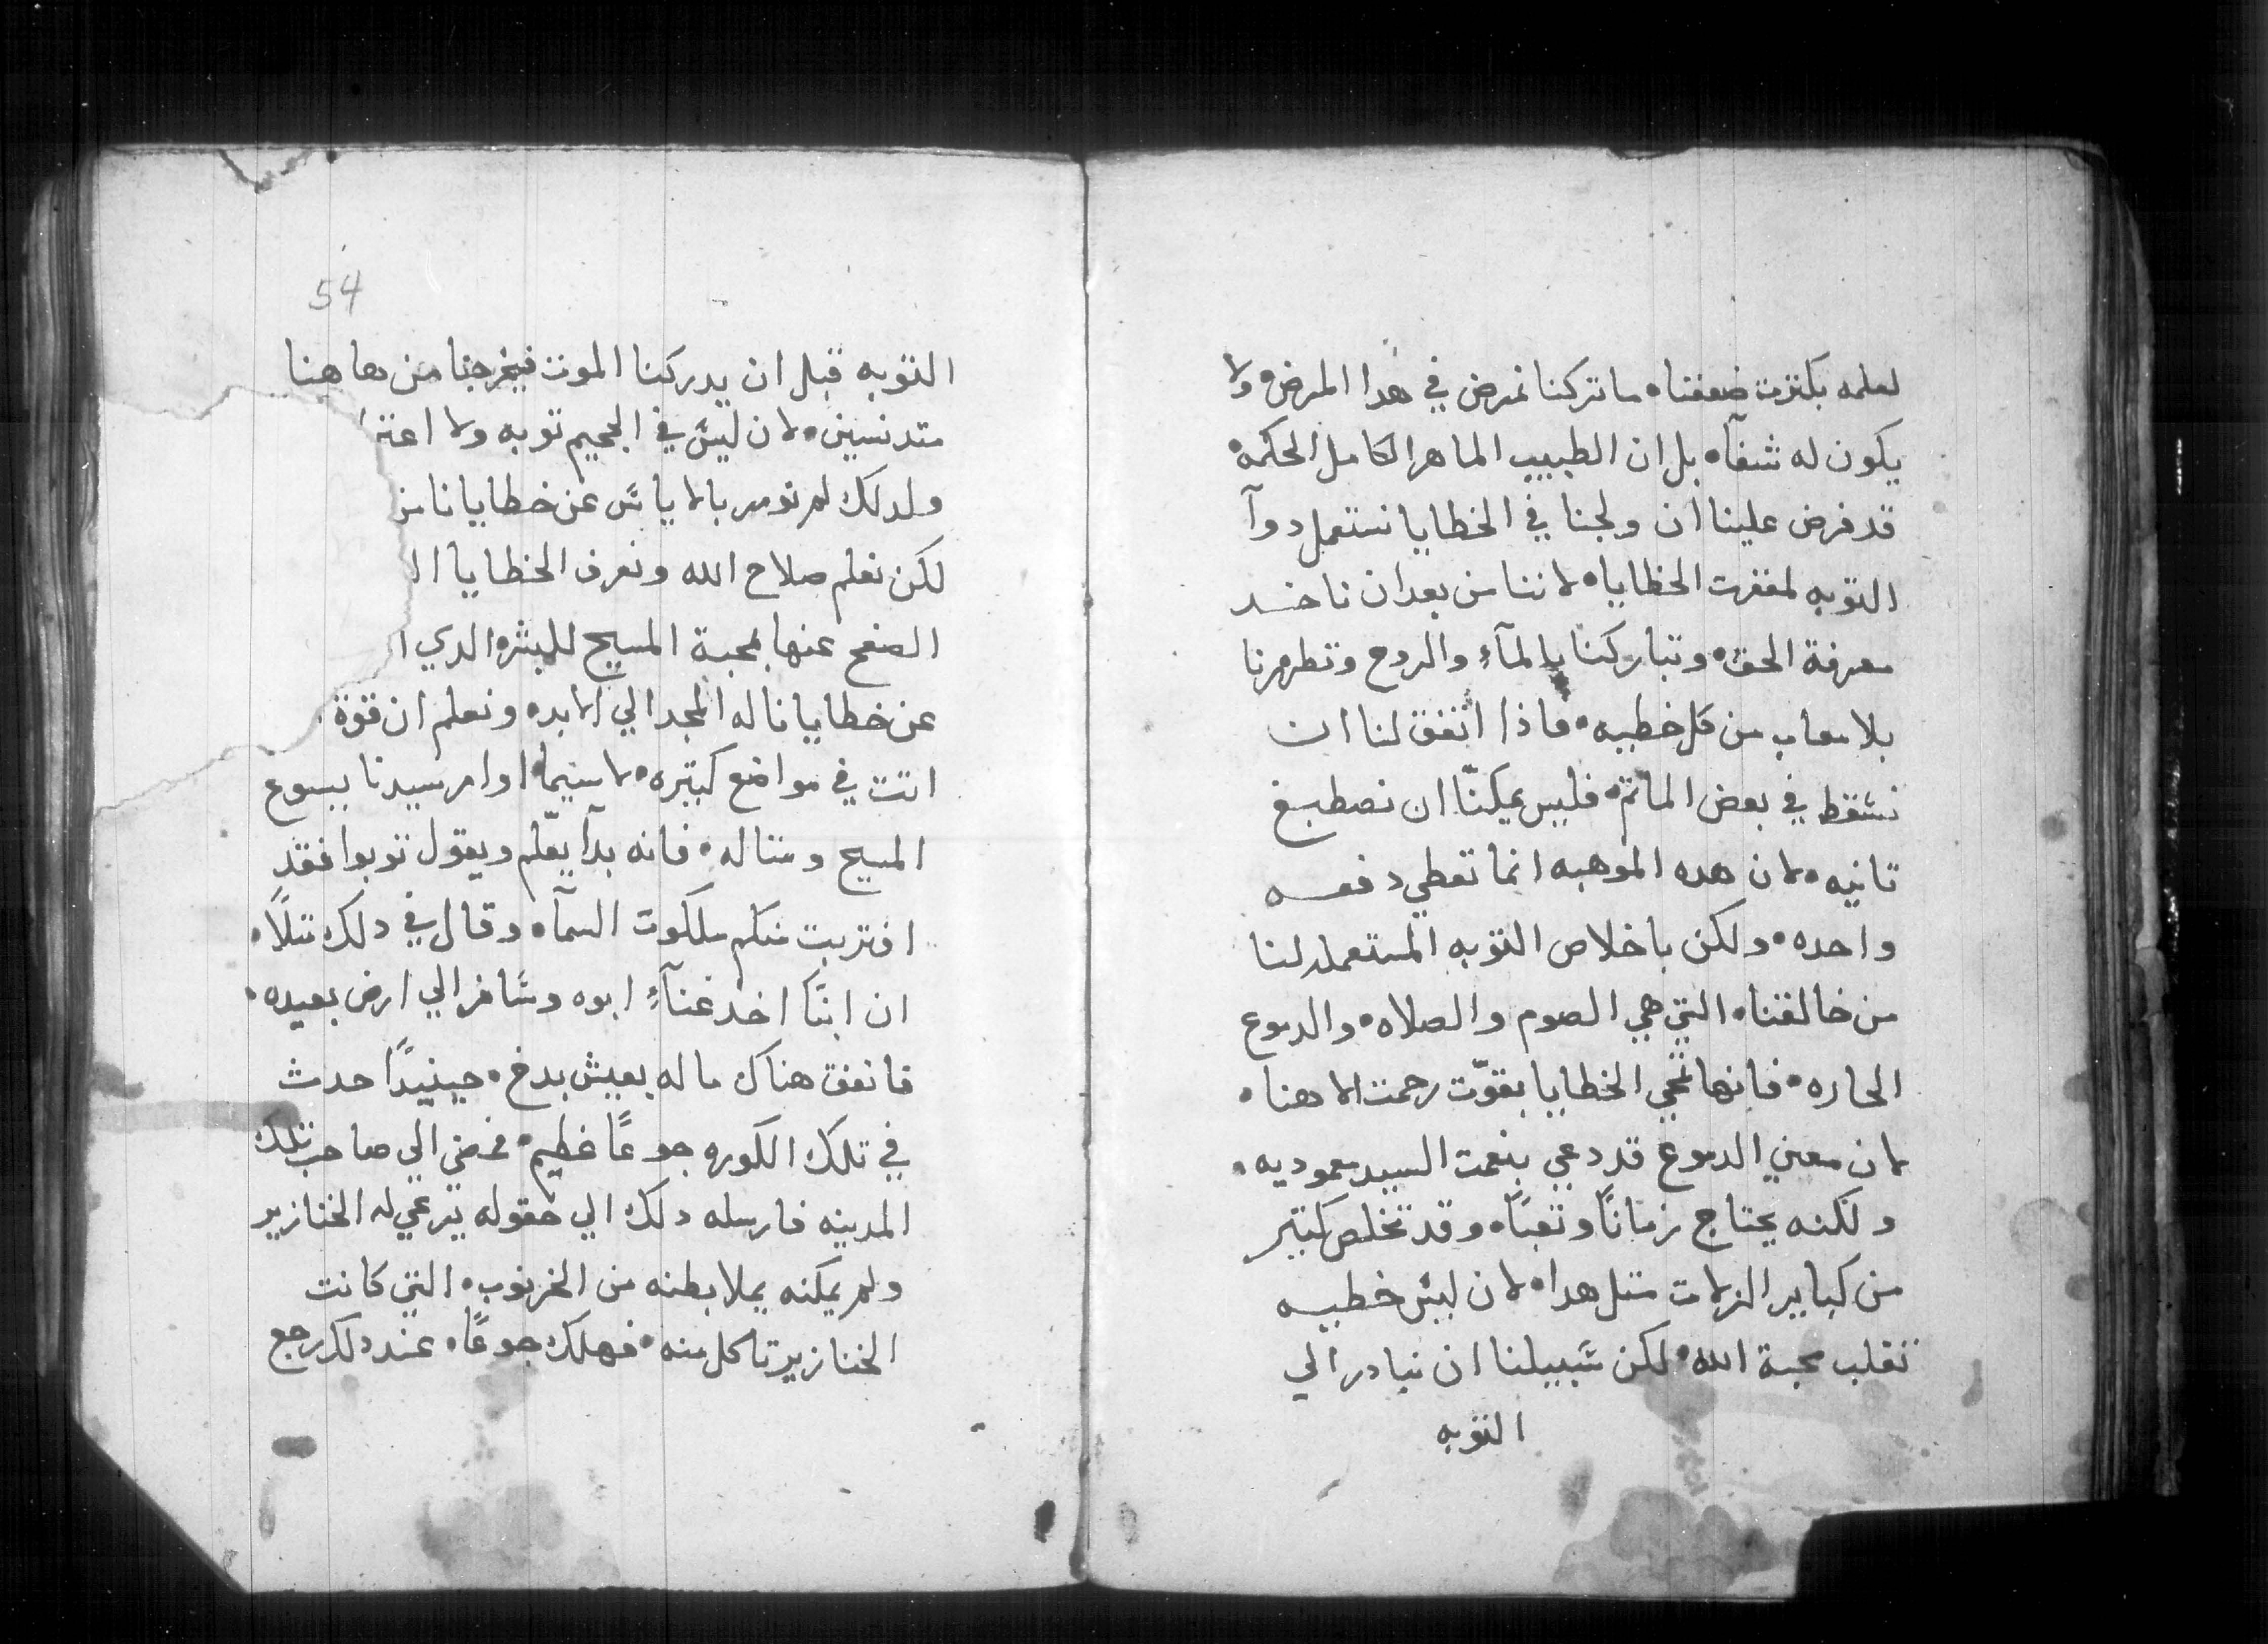 لعلمه بكترت ضعفنا • ما تركنا نمرض في هدا المرض • ولا
يكون له شفآء • بل ان الطبيب الماهر الكامل الحكمه •
قد فرض علينا ان ولجنا في الخطايا نستعمل دوآ
التوبه لمغفرت الخطايا • لاننا من بعد ان ناخد
معرفة الحق • وتباركنا بالمآءِ والروح وتطهرنا
بلا معاب من كل خطيه • فاذا اتفق لنا ان
نسَقط في بعض الماتم • فليس يمكنّا ان نصطبغ
تانيه • لان هده الموهبه انما تعطي دفعه
واحده • ولكن باخلاص التوبه المستعمله لنا
من خالقنا • التي هي الصوم والصلاه • والدموع
الحاره • فانها تمحي الخطايا بقوّت رحمت الاهنا •
لان معني الدموع قد دعي بنعمت السيد معموديه •
ولكنه يحتاج زمانًا وتعبًا • وقد تخلص كتير
من كبايرالزلات متل هدا • لان ليسَ خطيه
تغلب محبة الله • لكن سَبيلنا ان نبادر الي
التوبه
54
التوبه قبل ان يدركنا الموت فيخرجنا من هاهنا
متدنسين • لان ليسَ في الجحيم توبه ولا اعتر
ولدلك لم نومر بالاياسَ عن خطايانا من
لكن نعلم صلاح الله ونعرف الخطايا ال
الصفح عنها بمحبة المسيح للبشر • الدي ا
عن خطايانا له المجد الي الابد • ونعلم ان قوة
اتت في مواضع كتيره • لاسيما • اوامر سيدنا يسوع
المسيح ومتاله • فانه بدآ يعّلم ويقول توبوا فقد
اقتربت منكم ملكوت السمآء • وقال في دلك متلًا •
ان ابنًا اخد غنآءِ ابوه وسَافر الي ارض بعيده •
فانفق هناك ماله بعيش بدخ • حينيدًا حدث
في تلك الكوره جوعًا عظيم • فمضي الي صاحب تلك
المدينه فارسله دلك الي حقوله يرعي له الخنازير
ولم يمكنه يملا بطنه من الخرنوب • التي كانت
الخنازير تاكل منه • فهلك جوعًا • عند دلك رجع